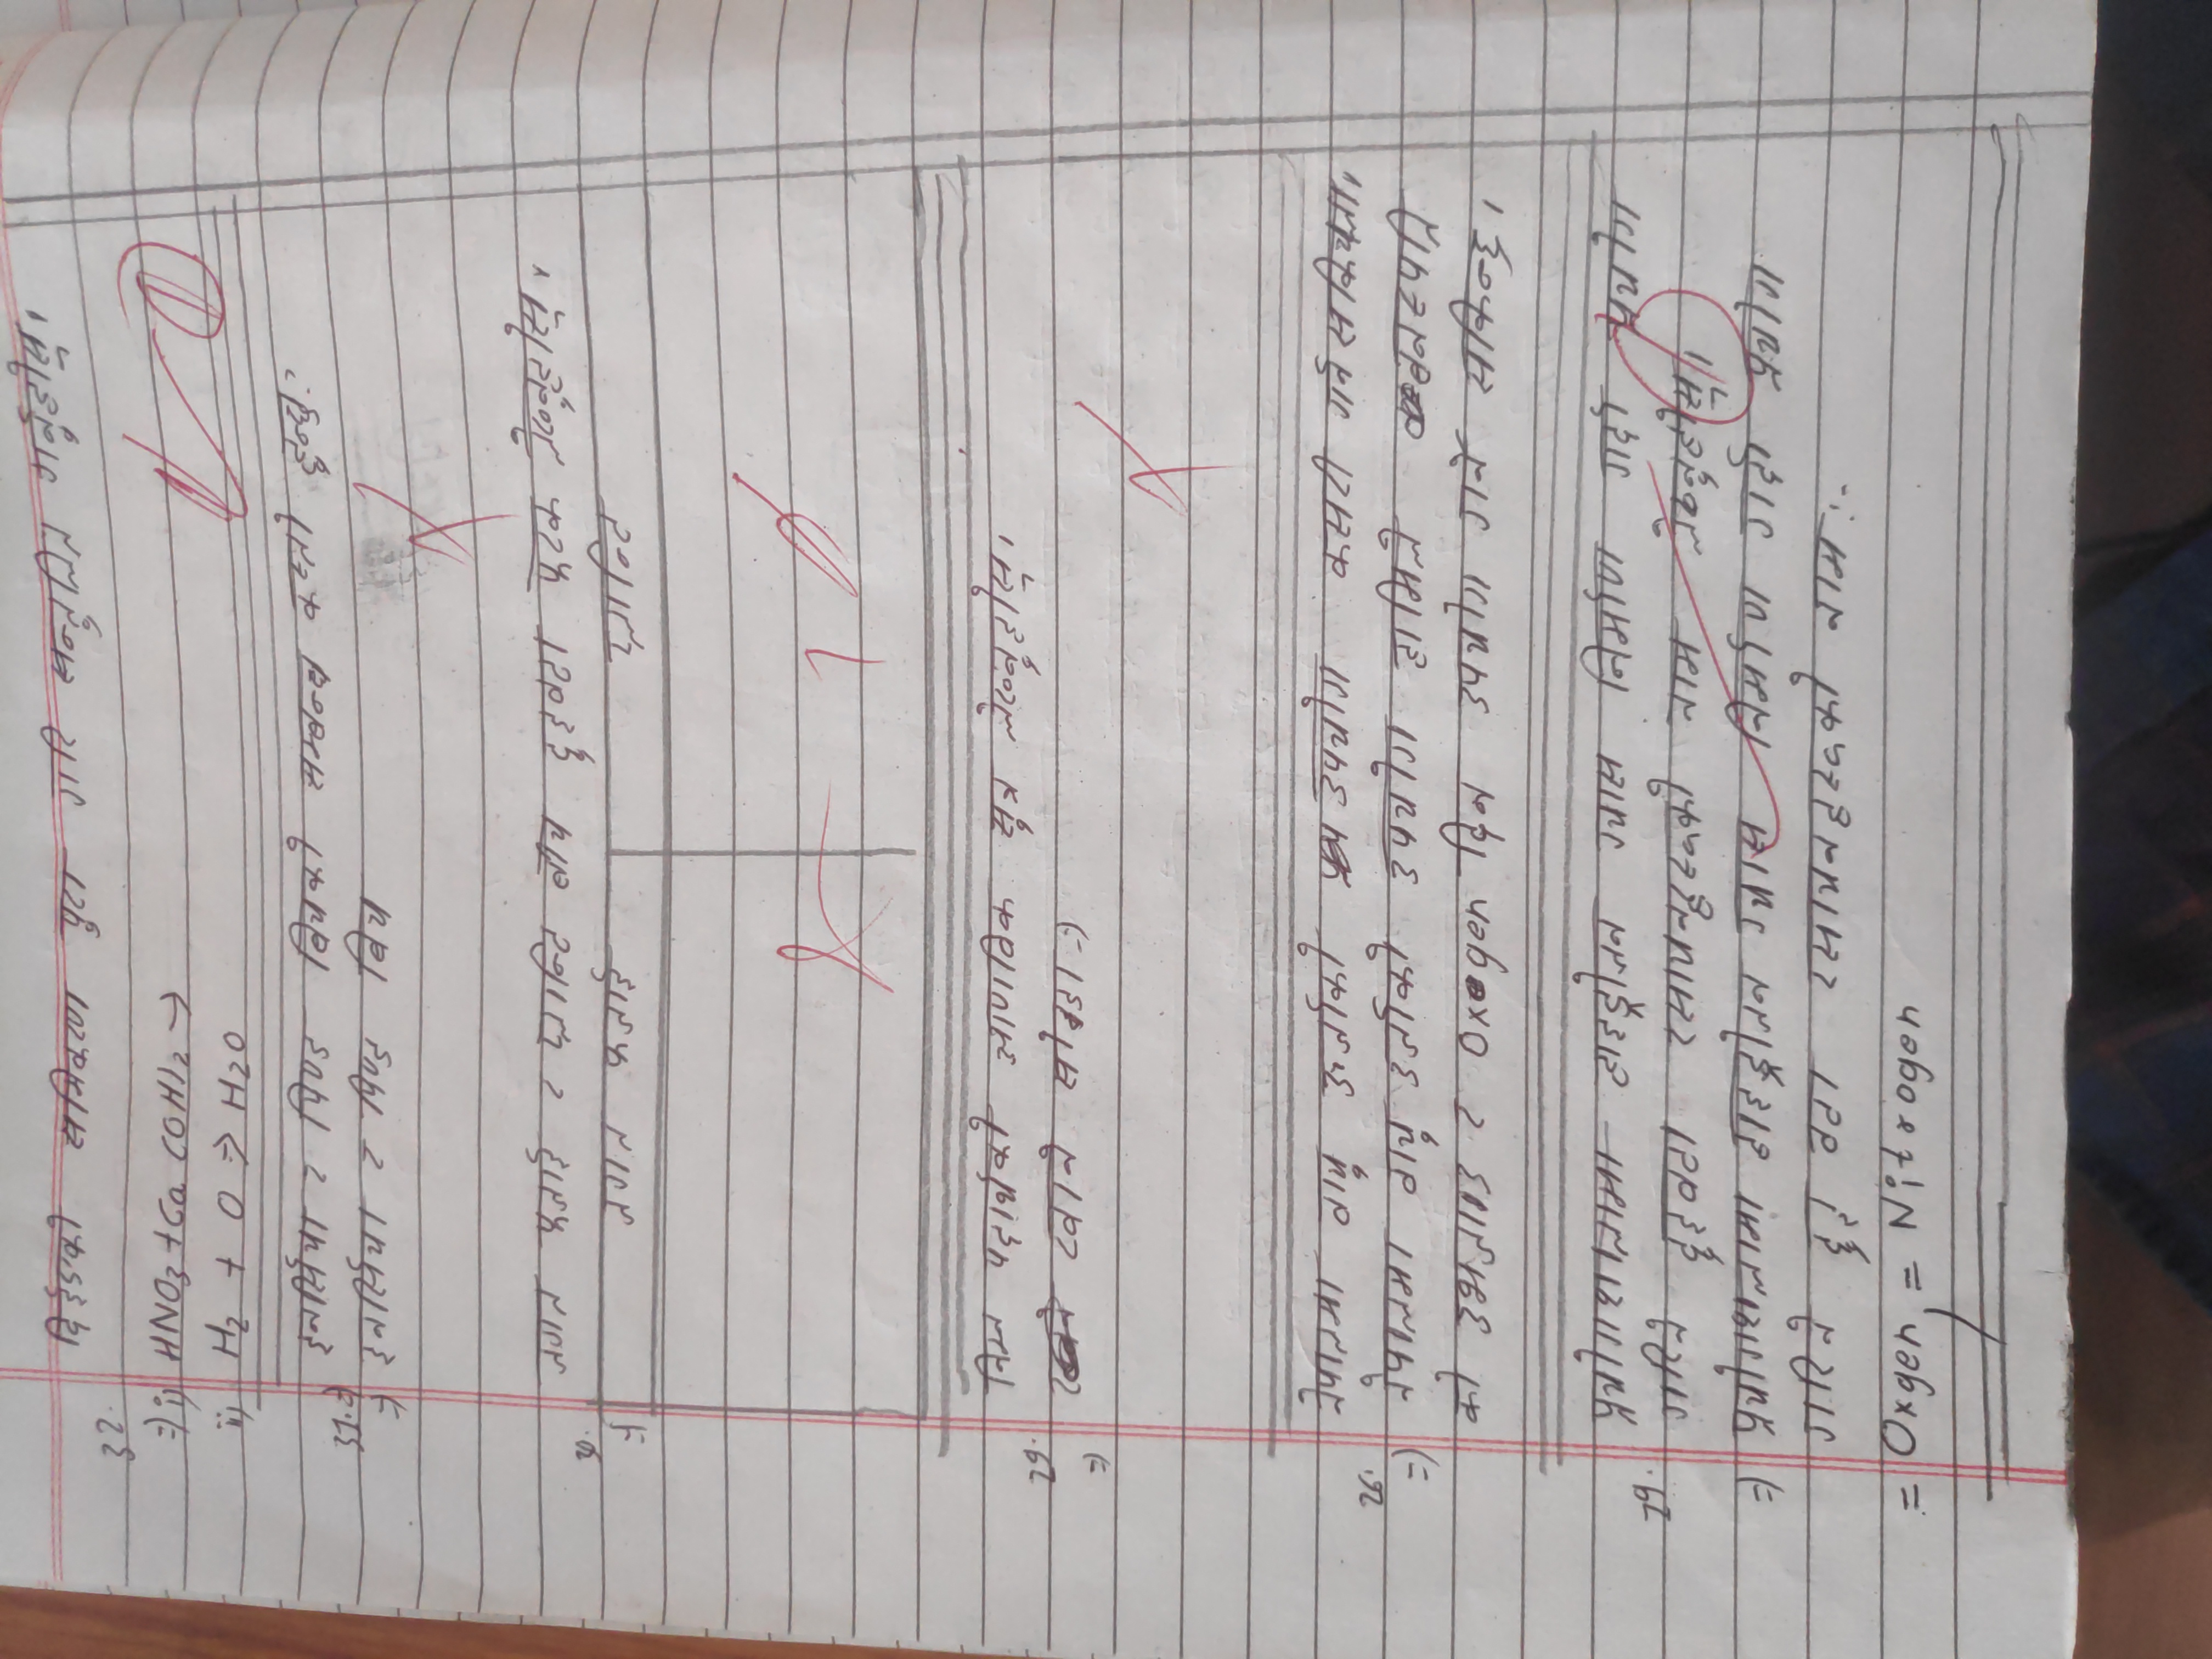 दिईएको समिकरण पुरा गरि सन्तुलित गर्नुहोस्।
32.
=) i) HNO3 + Ca (OH)2 →
ii) H2 + O => H2O
इनर्सिया र पिण्ड बिचको सम्बन्ध कस्तो हुन्छ?
31. =)
=) इनर्सिया र पिण्ड बिच
जगल फजाई र प्लान्टि बीच दुइवटा फरक लेख्नुहोस्।
=) जगल फजाई प्लान्टि
निम्न पदार्थको आणविक सुत्र लेख्नुहोस्।
29.
खाने सोडा =)
=)
नेपालमा वायु ऊर्जाको उपयोग कसरी गर्न सकियला।
26.
=) नेपालमा वायु उर्जाको उपयोग हामिले वनस्पति
को उभजाउ र Oxogen दिन उपयोग गर्न सकिन्छ।
प्रयोगशालामा हाइड्रोजन ग्यास निर्माण गर्दा प्रयोग
29.
गरिने दुइवटा रसायनहरूको नाम लेख्नुहोस्।
=) प्रयोगशलामा हाइड्रोजन ग्यास निर्माण गर्दा प्रयोग
गरिने दुइ वटा रसायनहरूको नाम:-
= Oxgen, = Nitrogen